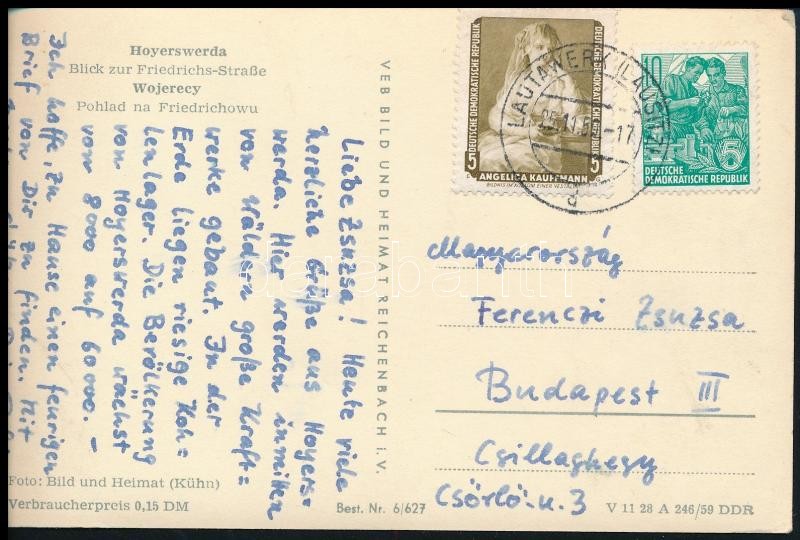 Hoyerswerda
Blick zur Friedrichs-Straße
Wojerecy
Pohlad na Friedrichowu
Liebe Zsuzsa! Heute viele
herzliche Grüße aus Hoyers=
werda. Hier werden inmitten
von Wäldern große Kraft=
werke gebaut. In der
Erde liegen riesige Koh=
lenlager. Die Bevölkerung
von Hoyerswerda wächst
von 8000 auf 60000. –
Ich hoffe, zu Hause einen feurigen
Brief von Dir zu finden. Mit
Foto: Bild und Heimat (Kühn)
Verbraucherpreis 0,15 DM
VEB BILD UND HEIMAT REICHENBACH i. V.
Best. Nr. 6/627
DEUTSCHE DEMOKRATISCHE REPUBLIK
DEUTSCHE DEMOKRATISCHE REPUBLIK
5 5
ANGELICA KAUFFMANN
BILDNIS IM KOSTÜM EINER VESTALIN
10
5
DEUTSCHE
DEMOKRATISCHE REPUBLIK
LAUTAWERK (LAUSITZ)
25.11.59-17
d
Magyarország
Ferenczi Zsuzsa
Budapest III
Csillaghegy
Csörlő-u. 3
V 11 28 A 246/59 DDR
darabanth